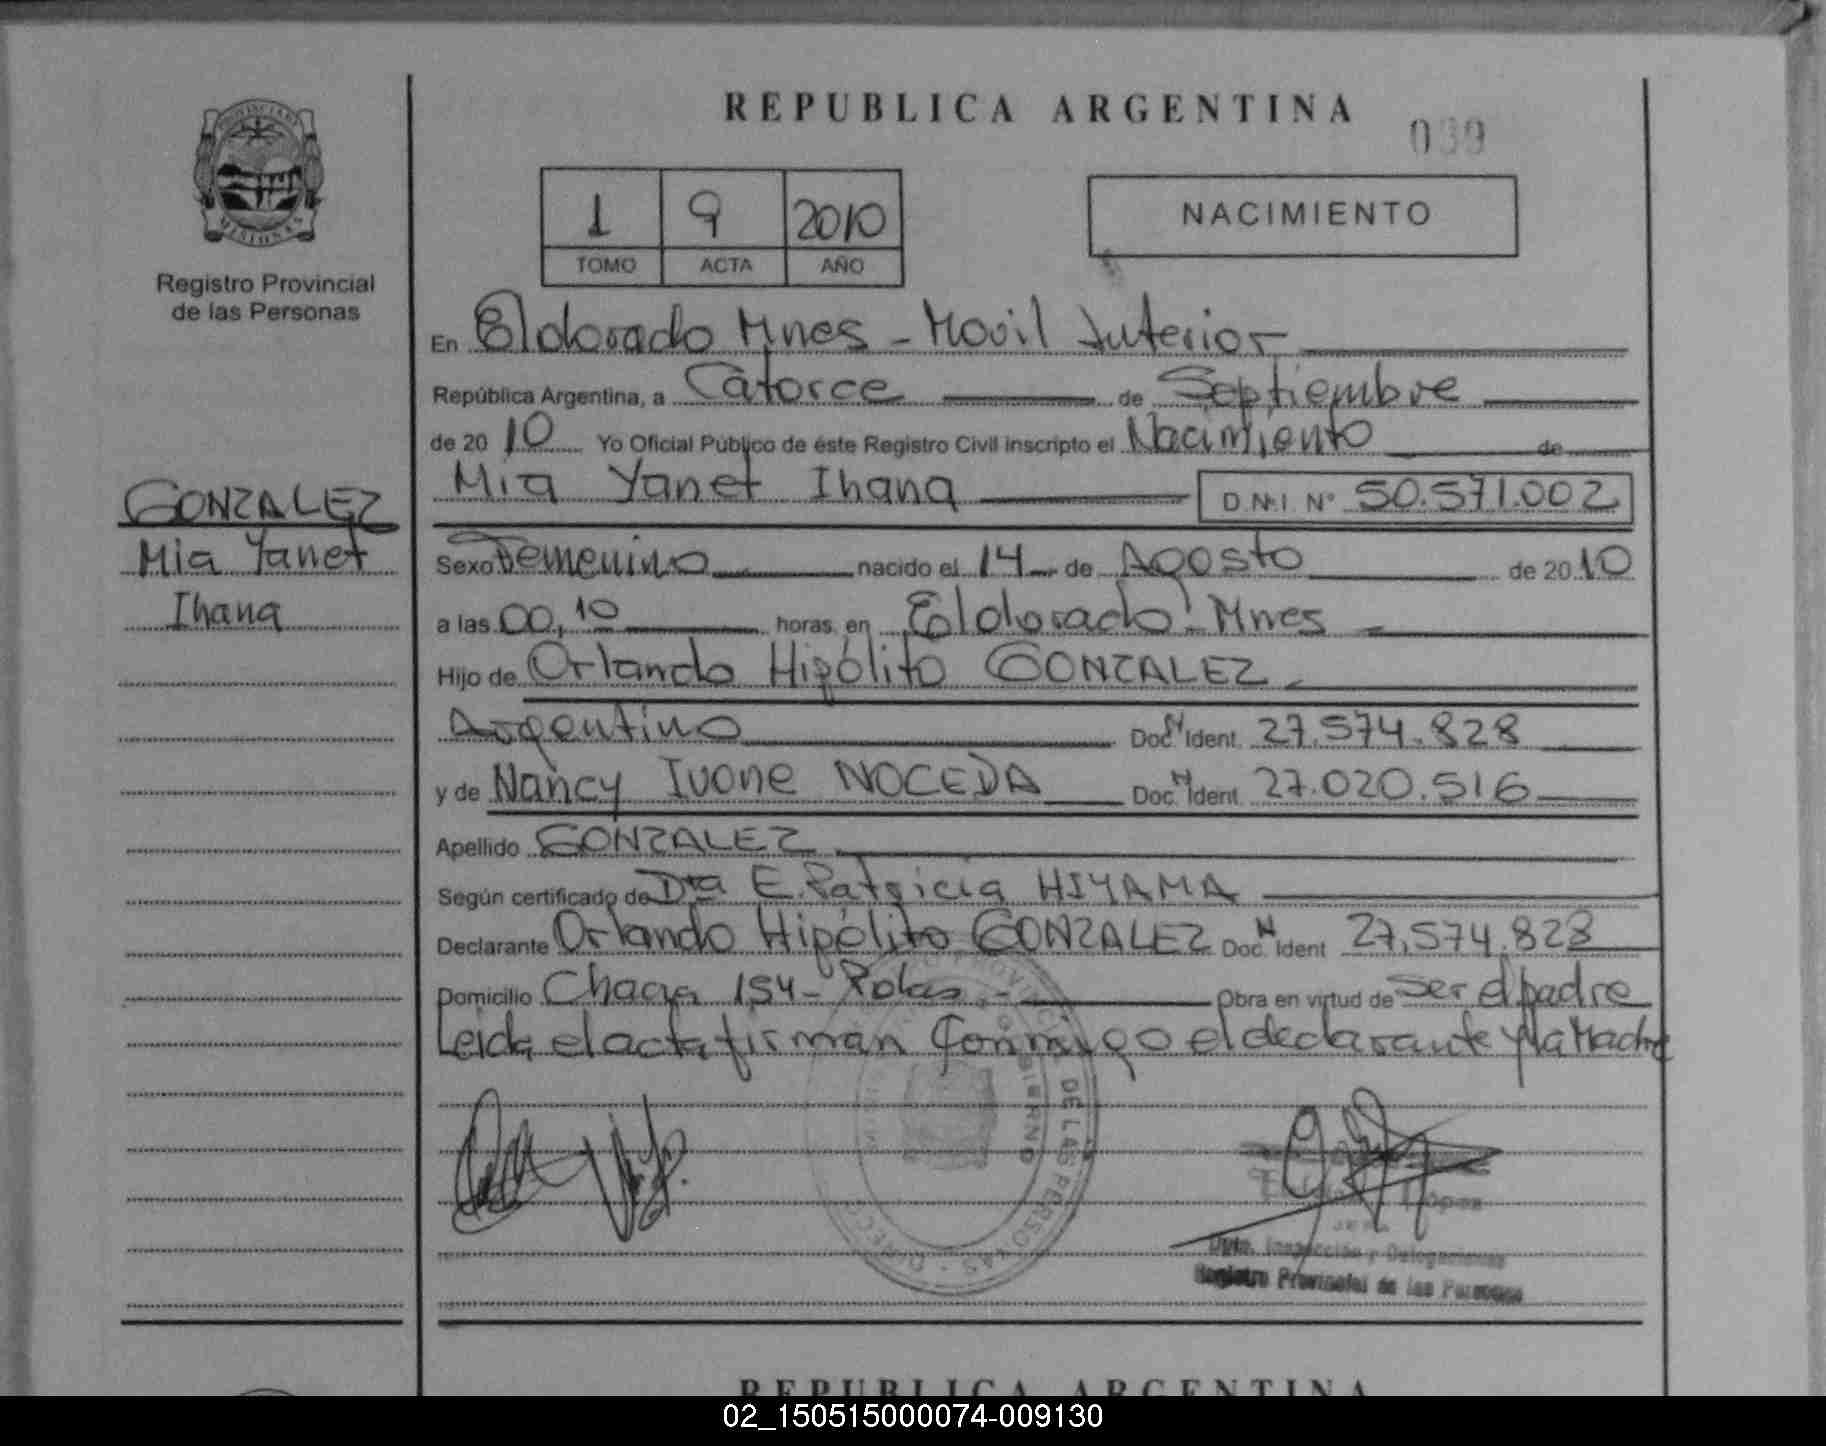 REPUBLICA ARGENTINA
039
PROVINCIA DE MISIONES
Registro Provincial
de las Personas
1 9 2010
TOMO ACTA AÑO
NACIMIENTO
En Eldorado Mnes - Movil Interior
República Argentina, a Catorce de Septiembre
de 2010 Yo Oficial Público de éste Registro Civil inscripto el Nacimiento de
Mia Yanet Ihana D.N.I. N° 50.571.002
GONZALEZ
Mia Yanet
Ihana
Sexo Femenino nacido el 14 de Agosto de 2010
a las 00,10 horas, en Eldorado - Mnes
Hijo de Orlando Hipólito GONZALEZ
Argentino Doc. N Ident. 27.574.828
y de Nancy Ivone NOCEDA Doc. N Ident. 27.020.516
Apellido GONZALEZ
Según certificado de Dra E. Patricia HIYAMA
Declarante Orlando Hipólito GONZALEZ Doc. N Ident 27,574.828
Domicilio Chacra 154 - Rolas - Obra en virtud de Ser el padre
Leida el acta firman conmigo el declarante y la Madre
DE LAS PERSONAS
López
JEFA
Dpto. Inspección y Delegaciones
Registro Provincial de las Personas
REPUBLICA ARGENTINA
02_150515000074-009130